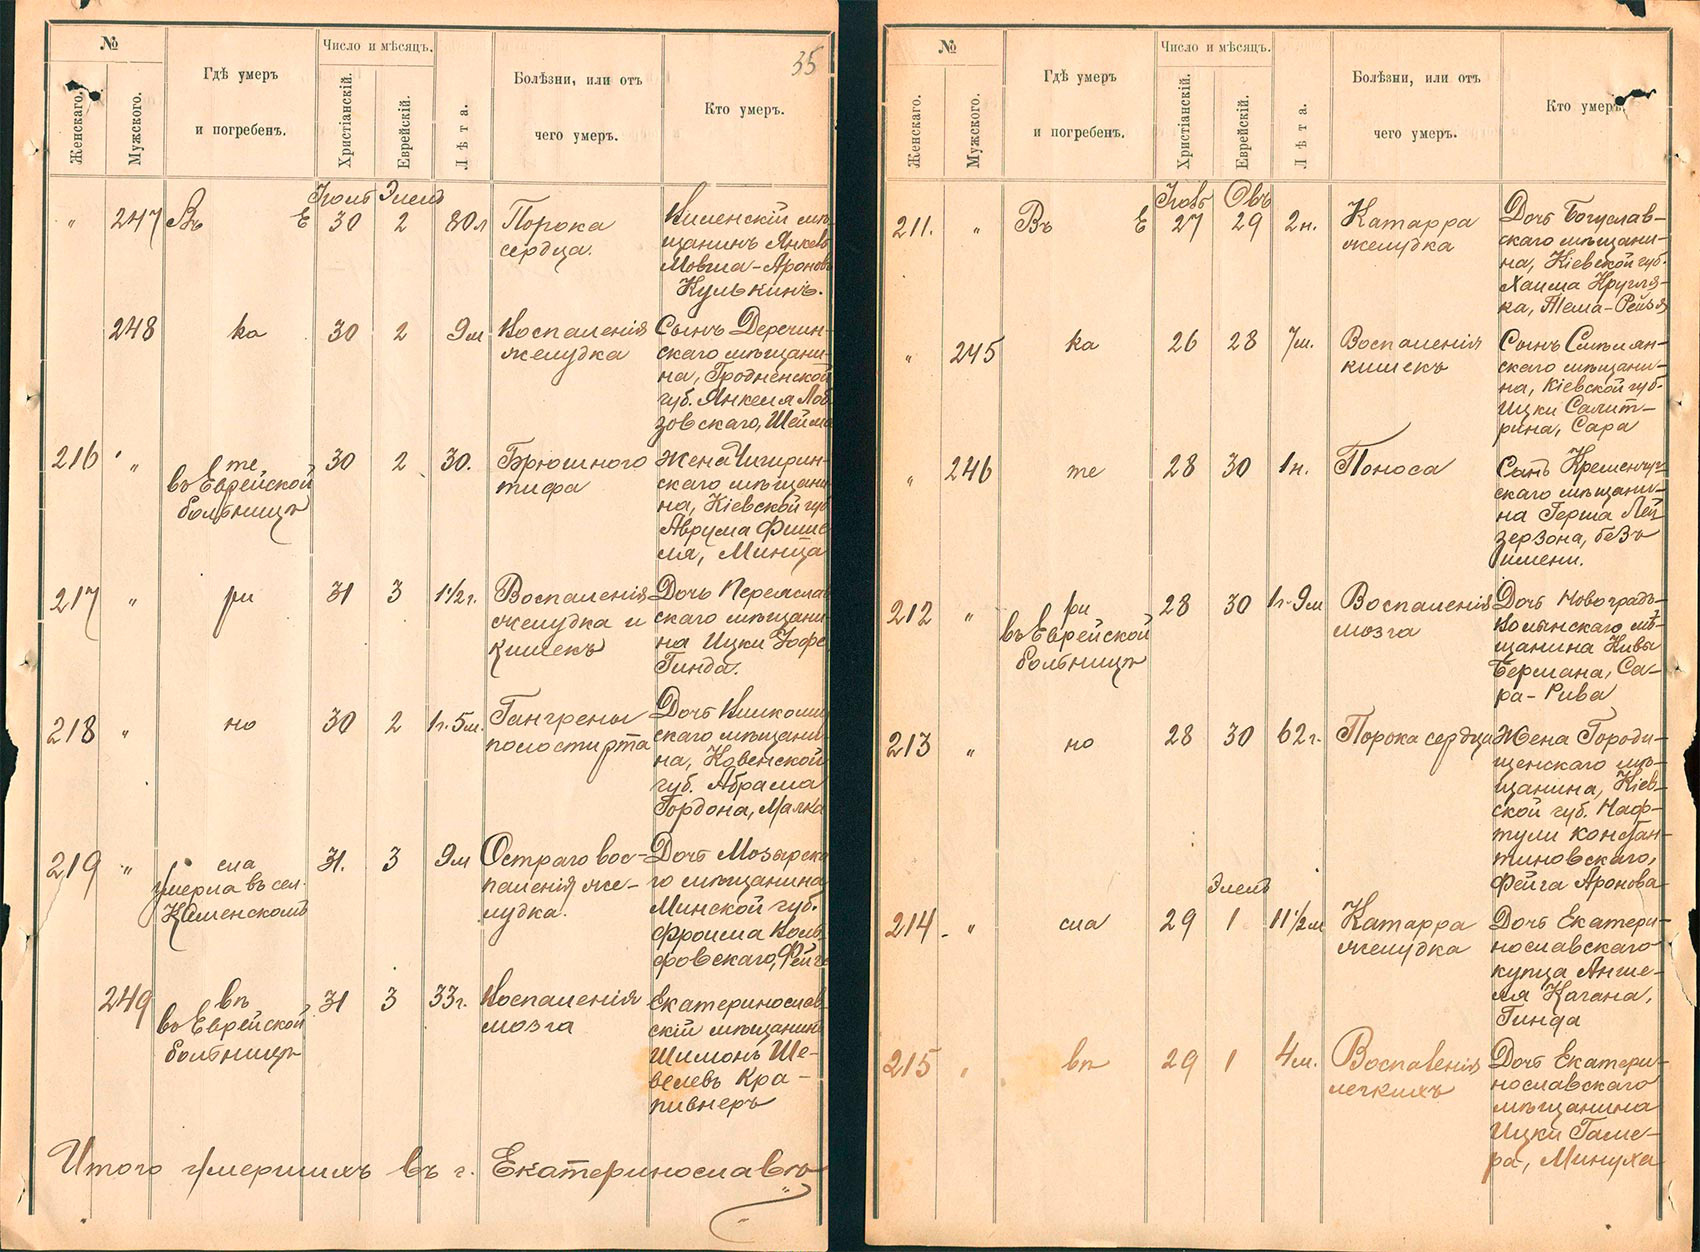 35
№
Женскаго.
Мужского.
Гдѣ умеръ
и погребенъ.
Число и мѣсяцъ.
Христіанскій.
Еврейскій.
Лѣта.
Болѣзни, или отъ
чего умеръ.
Кто умеръ.
Элелъ
„ 247 Въ Е 30 2 80л Порока
сердца.
Виленскій мѣ-
щанинъ Янкевъ
Мовша-Ароновъ
Кулькинъ.
248 ка 30 2 9м Воспаленія
желудка
Сынъ Деречин-
скаго мѣщани-
на, Гродненской
губ. Янкеля
зовскаго,
216 „ те 30 2 30. Брюшного
въ Еврейской тифа
больницѣ
Жена Чигирин-
скаго мѣщани-
на, Кіевской губ
Аврума Фише
ля, Минца
217 „ ри 31 3 1½г. Воспаленія
желудка и
кишекъ
Дочь Переяслав
скаго мѣщани-
на Ицки
Гинда.
218 „ но 30 2 1г.5м. Гангрены
полости рта
Дочь Вилкоми
скаго мѣщани-
на, Ковенской
губ. Абрама
Гордона, Малка
219 „ сла 31. 3 9м Остраго вос-
умерла въ сел. паленія же-
Каменскомъ лудка.
Дочь Мозырска
го мѣщанина
Минской губ.
Фроима Воль
фовскаго, Фейга
249 вѣ 31 3 33г. Воспаленія
въ Еврейской мозга
больницѣ
Екатеринослав-
скій мѣщанинъ
Шимонъ Ше-
велевъ Кра-
пивнеръ
Итого умершихъ въ г. Екатеринославѣ
№
Женскаго.
Мужского.
Гдѣ умеръ
и погребенъ.
Число и мѣсяцъ.
Христіанскій.
Еврейскій.
Лѣта.
Болѣзни, или отъ
чего умеръ.
Кто умеръ.
Овъ
211. „ Въ Е 27 29 2н. Катарра
желудка
Дочь Богуслав-
скаго мѣщани-
на, Кіевской губ.
Хаима Кругля-
ка, Тема-Рейзя
„ 245 ка 26 28 7м. Воспаленія
кишекъ
Сынъ Смѣлян-
скаго мѣщани-
на, Кіевской губ.
Ицки Салит-
рина, Сара
„ 246 те 28 30 1н. Поноса
Сынъ Кременчуг-
скаго мѣщани-
на Герша Лей
зерзона, безъ
имени.
212 „ ри 28 30 1г.9м Воспаленія
въ Еврейской мозга
больницѣ
Дочь Новоградъ-
Волынскаго мѣ-
щанина Кивы
Бермана, Са-
ра-Рива
213 „ но 28 30 62г. Порока сердца
Жена Городи-
щенскаго мѣ-
щанина, Кіев-
ской губ. Наф-
тули Констан-
тиновскаго,
Фейга Аронова
Элелъ
214 „ сла 29 1 11½м Катарра
желудка
Дочь Екатери-
нославскаго
купца Анше-
ля Кагана,
Гинда
215 „ вѣ 29 1 4м. Воспаленія
легкихъ
Дочь Екатери-
нославскаго
мѣщанина
Ицки Гаме-
ра, Минуха